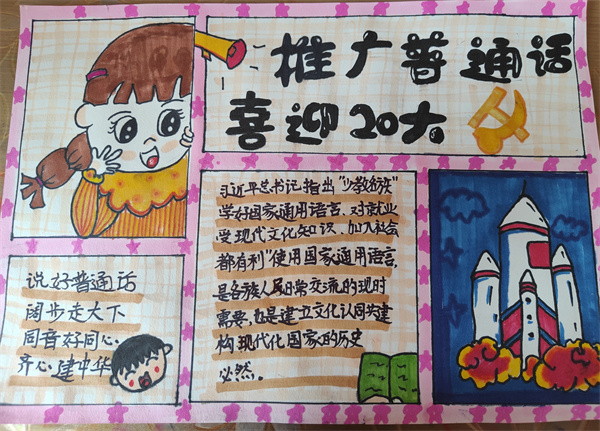 推广普通话
喜迎20大
习近平总书记指出"少数民族
学好国家通用语言、对就业
受现代文化知识、加入社会
都有利"使用国家通用语言,
是各族人民日常交流的现时
需要,也是建立文化认同共建
构现代化国家的历史
必然。
说好普通话
阔步走天下
同音好同心
齐心建中华